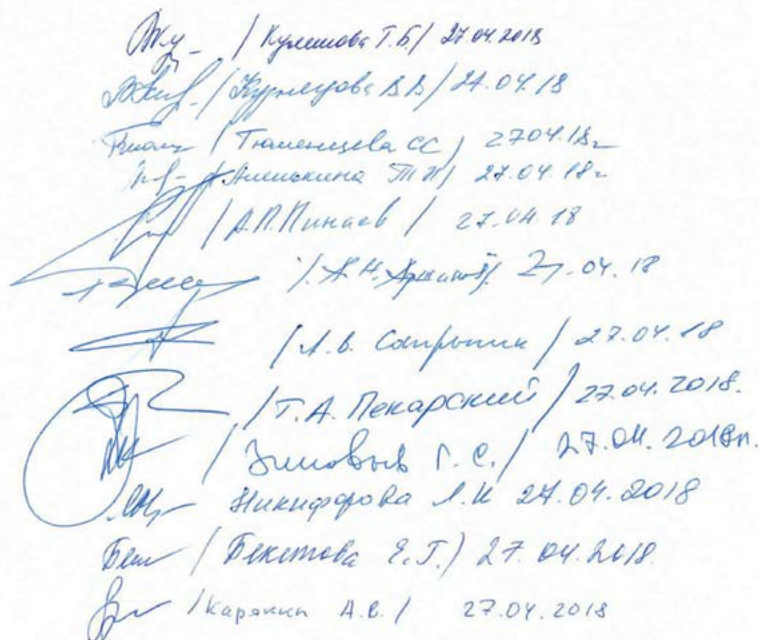 / Кулешова Т.Б./ 27.04.2018
/ В.В./ 27.04.18
/ Тюменцева СС / 27.04.18г
/ Анискина 27.04.18г
/ А.П. Пинаев / 27.04.18
/ А.Н. / 27.04.18
/ А.В. Сапрыкин / 27.04.18
/ Т.А. Пекарский / 27.04.2018.
/ Зиновьев Г.С. / 27.04.2018г.
Никифорова Л.И 27.04.2018
/ Бекетова Е.Г.) 27.04.2018
/ Карякин А.В. / 27.04.2018